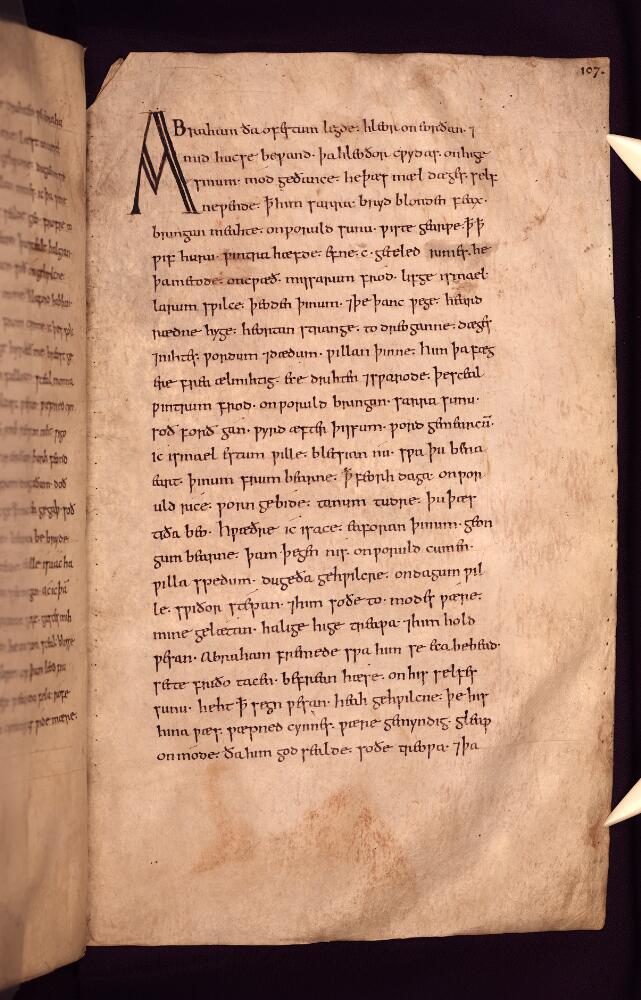 107.
ABraham ða ofestum legde· hleor on eorðan· ⁊
mid hucse bewand· þa hleoðor cwydas· on hige
sinum· mod geðance· he þæs mæl dæges self
ne wende· ꝥ him sarra· bryd blonden feax·
bringan meahte· on woruld sunu· wiste gearwe· ꝥ ꝥ
wif huru· wintra hæfde· efne· c· geteled rimes· he
þa metode· oncwæð· missarum frod· lifge ismael·
larum swilce· þeoden þinum· ⁊ þe þanc wege· heard
rædne hyge· heortan strange· to dreoganne· dæges
⁊ nihtes· wordum ⁊ dædum· willan þinne· him þa fæg
ere frea ælmihtig· ece drihten ⁊swarode· þe sceal
wintrum frod· on woruld bringan· sarra sunu·
soð forð gan· wyrd æfter þissum· word gemearcū·
ic ismael estum wille· bletsian nu· swa þu bena
eart· þinum frum bearne· ꝥ feorh daga· on wor
uld rice· worn gebide· tanum tudre· þu þæs
tiða beo· hwæðre ic isace· eaforan þinum· geon
gum bearne· þam þe gen nis· on woruld cumen·
willa spedum· dugeða gehwilcre· on dagum wil
le· swiðor stepan· ⁊ him soðe to· modes wære·
mine gelætan· halige hige treowa· ⁊ him hold
wesan· Abraham fremede swa him se eca bebead·
sette friðo tacen· be frean hæse· on his selfes
sunu· heht ꝥ segn wesan· heah gehwilcne· þe his
hina wæs· wæpned cynnes· wære gemyndig· gleaw
on mode· ða him god sealde· soðe treowa· ⁊ þa